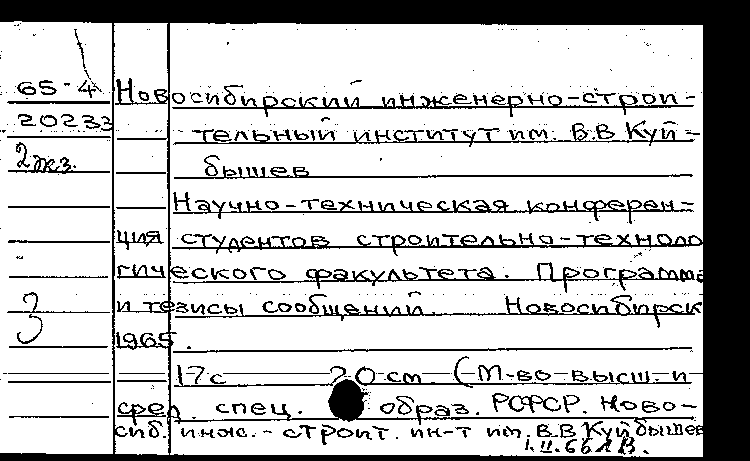 65-4 Новосибирский инженерно-строи-
20233 тельный институт им. В.В Куй-
2 экз. бышев
Научно-техническая конферен-
ция студентов строительно-техноло
гического факультета. Программа
и тезисы сообщений. Новосибирск
3
1965.
17с 20 см. (М-во высш. и
сред. спец. образ. РСФСР. Ново-
сиб. инж.-строит. ин-т им. В.В Куйбышев
1.II.66 ЛВ.